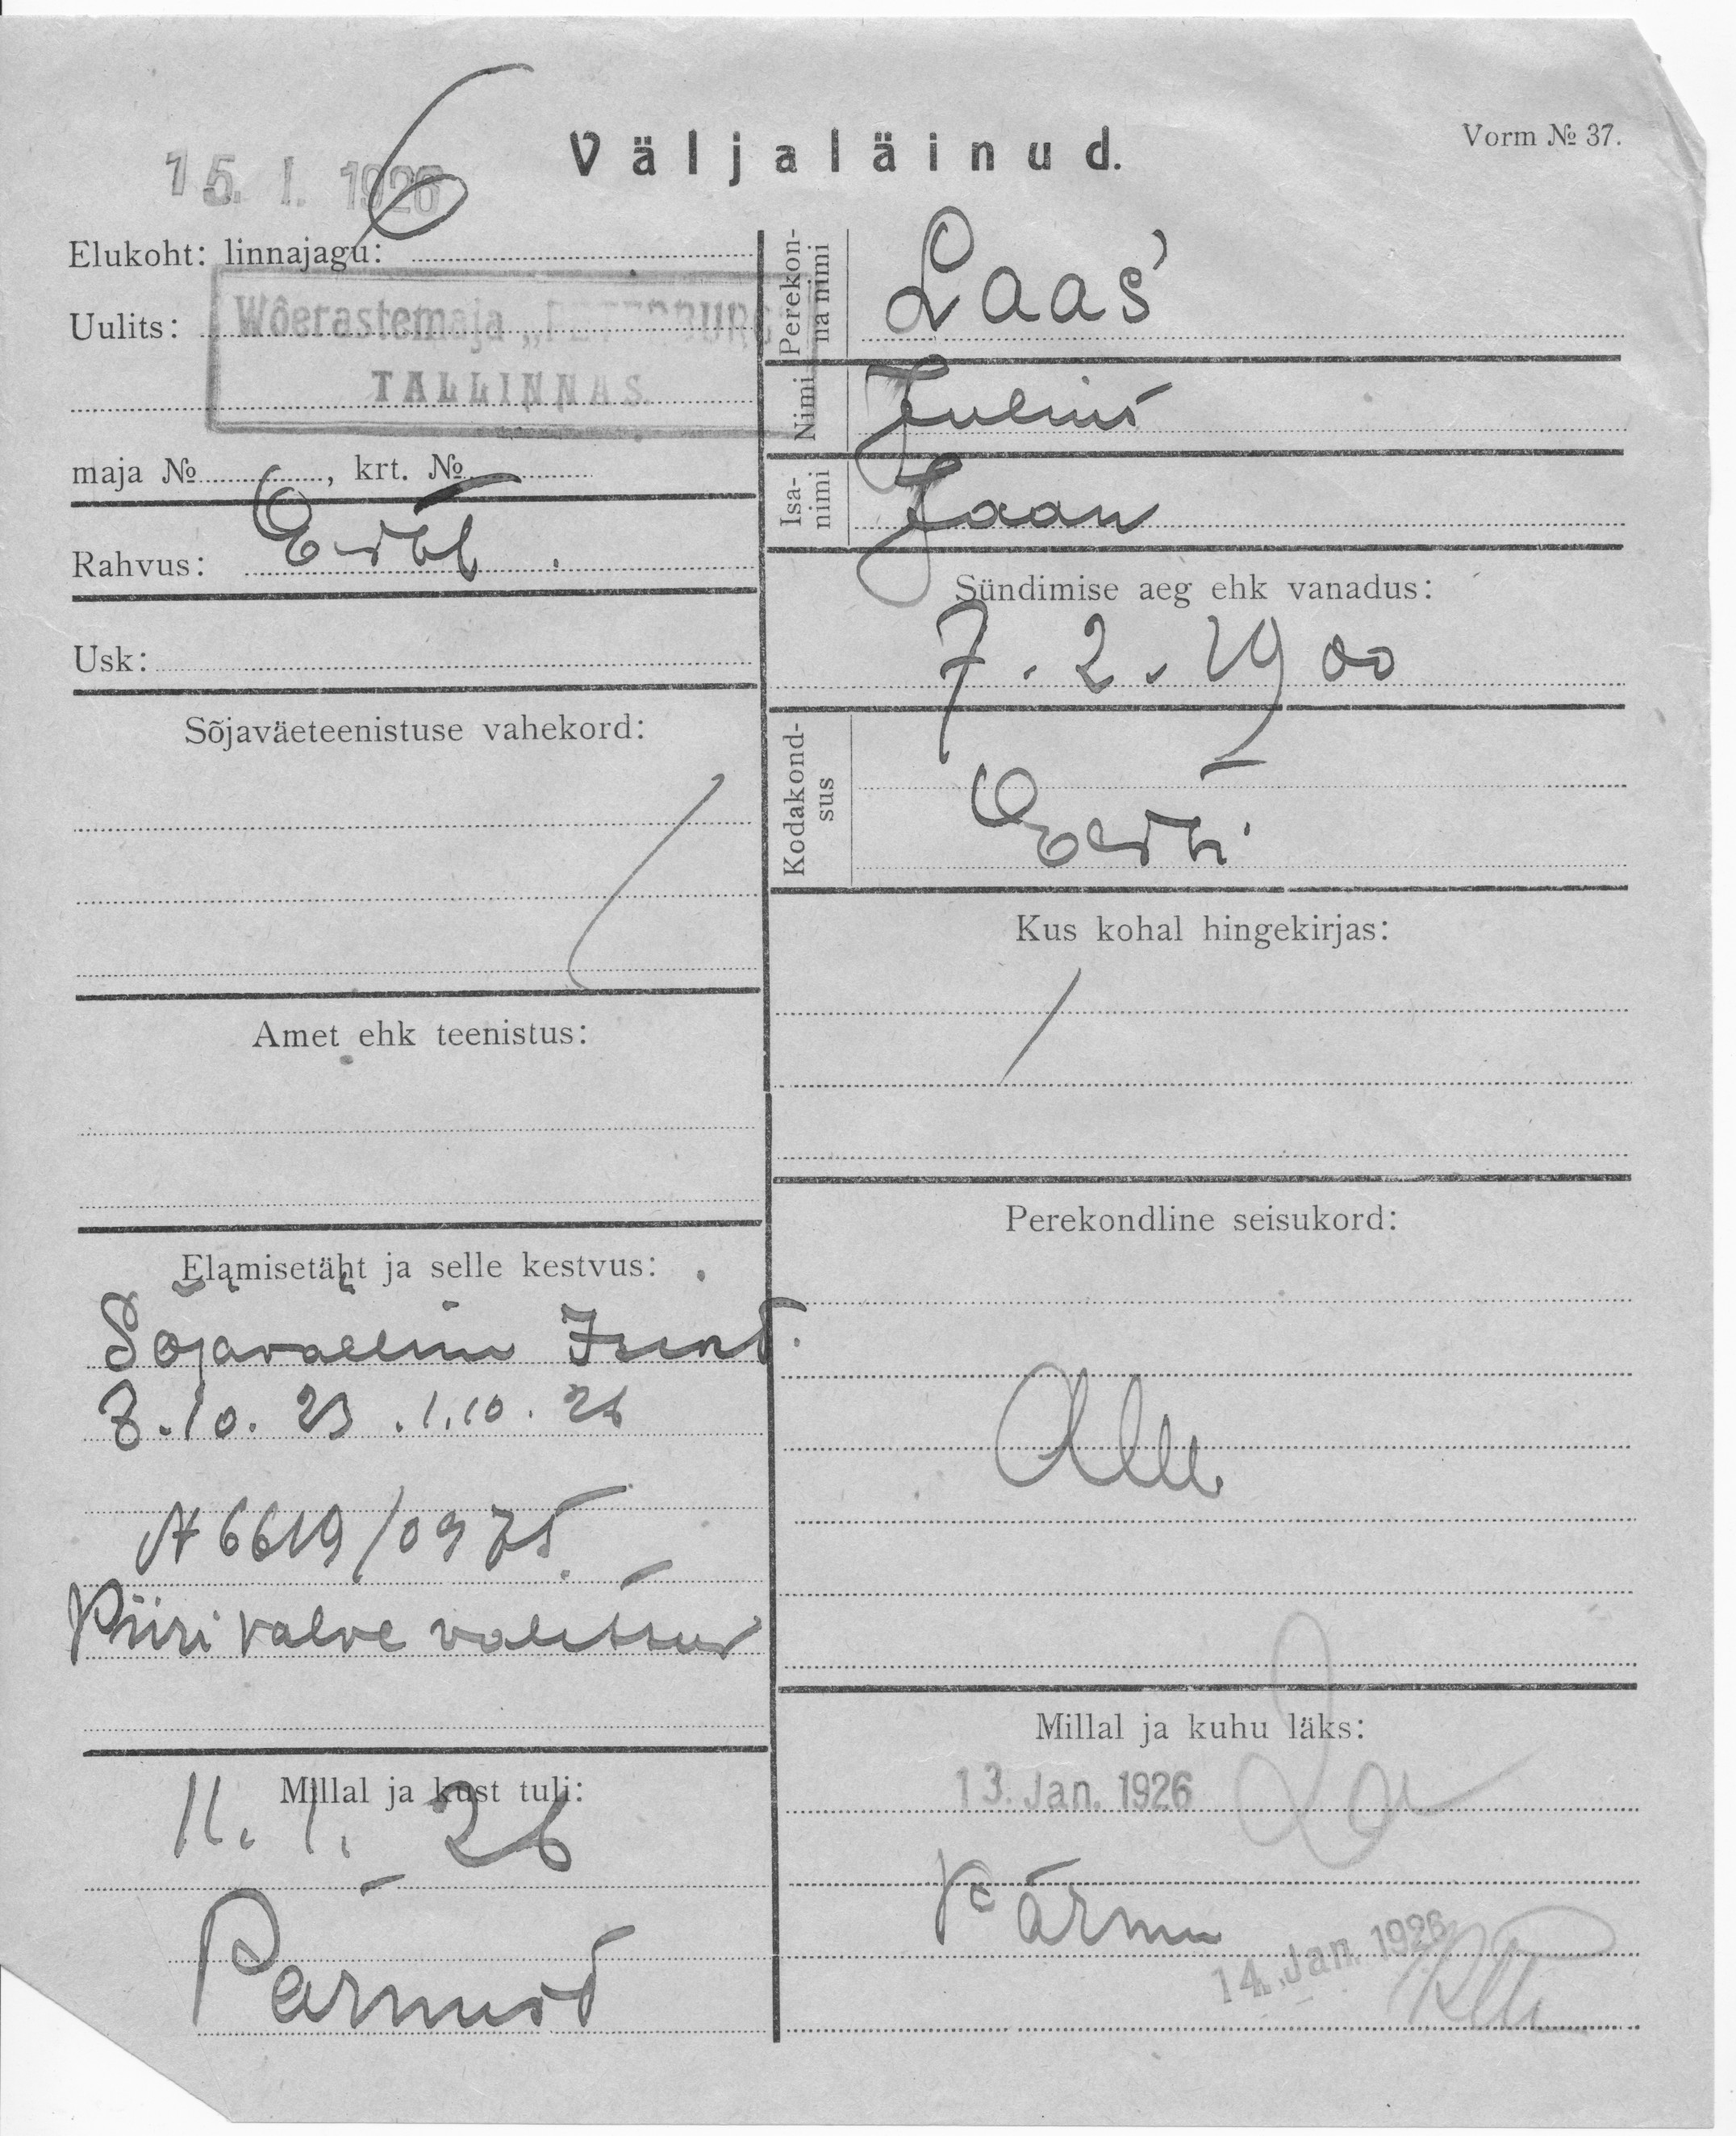 Väljaläinud.
Vorm № 37.
15. I. 1926
6
Elukoht: linnajagu:
Uulits:
Wõerastemaja „PETERBURG
TALLINNAS.
maja № , krt. №
Rahvus: Eesti
Usk:
Sõjaväeteenistuse vahekord:
Amet ehk teenistus:
Elamisetäht ja selle kestvus:
Sõjaväeline
7.10.23 . 1.10.26
N 6619/0975
Piiri valve valitsus
Millal ja kust tuli:
11. 1. 26
Pärnust
Perekon-
na nimi
Laas
Nimi
Julius
Isa-
nimi
Jaan
Sündimise aeg ehk vanadus:
7. 2. 1900
Kodakond-
sus
Eesti
Kus kohal hingekirjas:
Perekondline seisukord:
Millal ja kuhu läks:
13. Jan. 1926
Pärnu
14. Jan. 1926